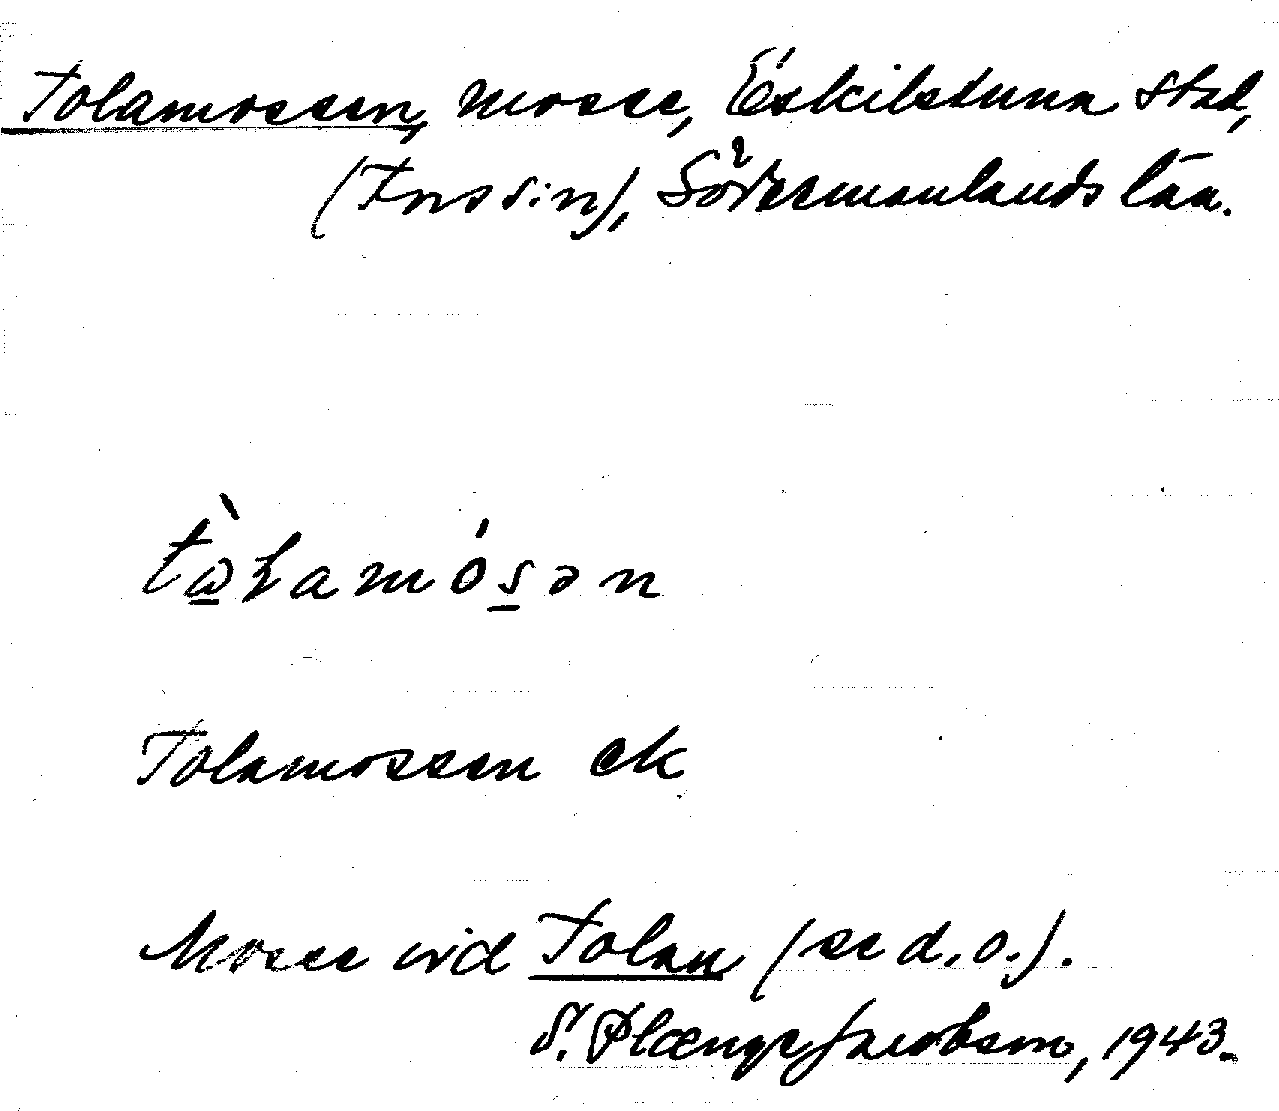 Tolamossen, mosse, Eskilstuna stad,
(Fors s:n), Södermanlands län.
tὼ̱ɫamós̱ən
Tolamossen ek
Mosse vid Tolan (se d. o.).
S. Plænge Jacobson, 1943.